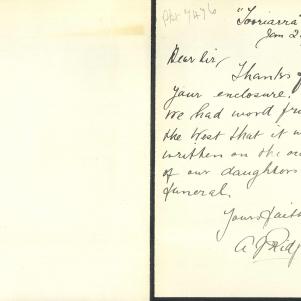 "Tooriarra"
Jan 2
Dear Sir,
Thanks f
your enclosure.
We had word fr
the West that it w
written on the
of our daughters
funeral.
Yours faith